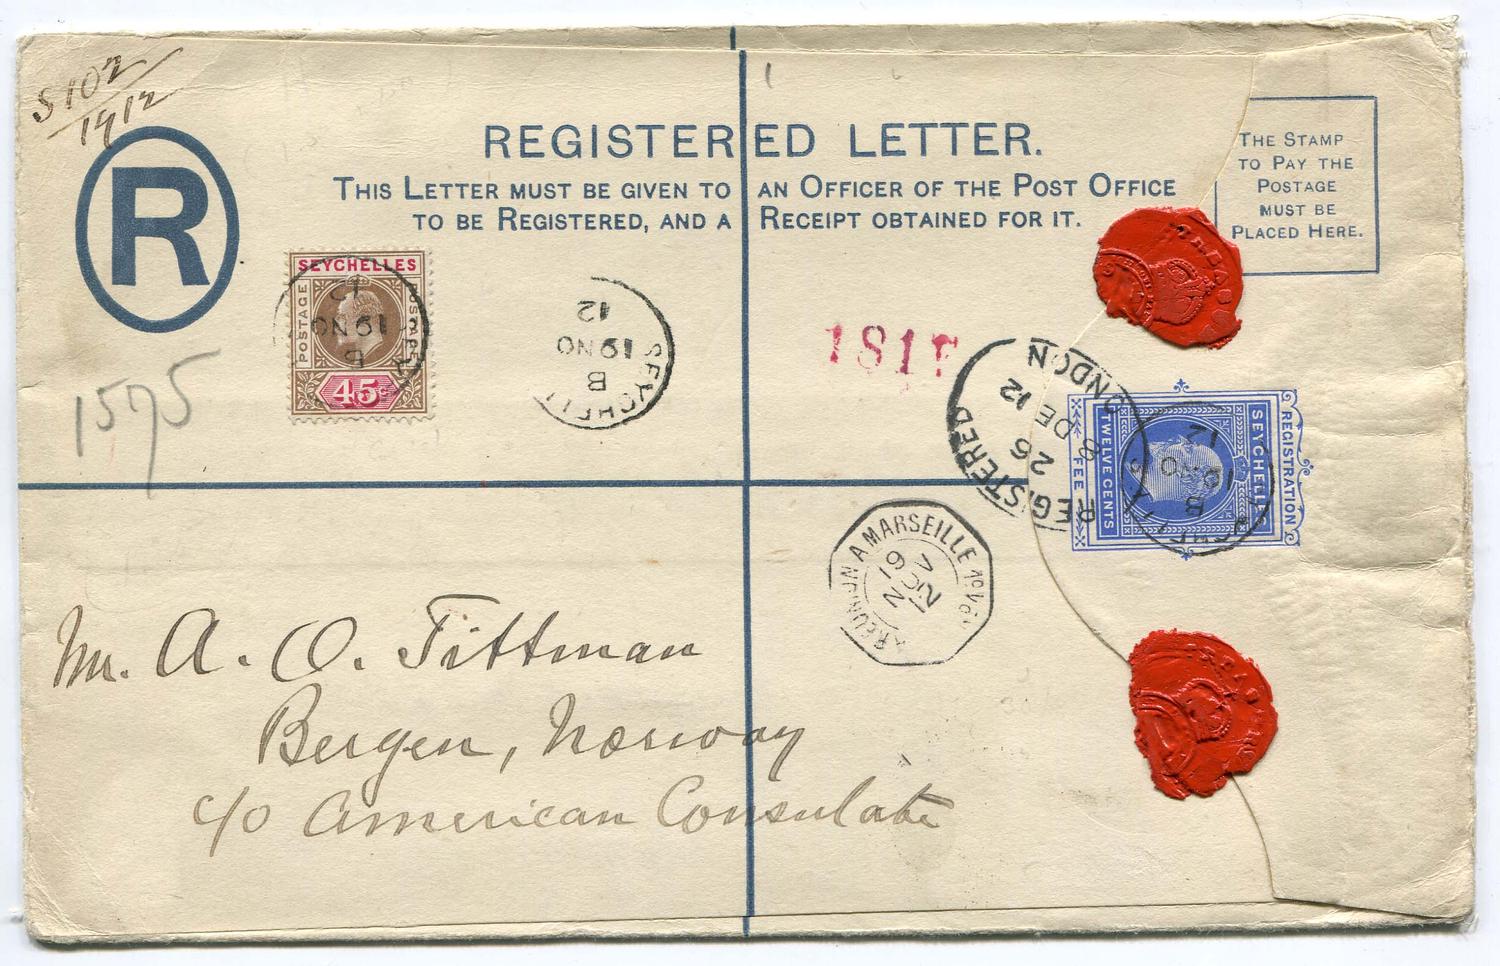 S 102
1912
R
REGISTERED LETTER.
THIS LETTER MUST BE GIVEN TO AN OFFICER OF THE POST OFFICE
TO BE REGISTERED, AND A RECEIPT OBTAINED FOR IT.
THE STAMP
TO PAY THE
POSTAGE
MUST BE
PLACED HERE.
SEYCHELLES
POSTAGE
POSTAGE
45c
B
19 NO
12
SEYCHELL
B
19 NO
12
1575
181
REGISTERED
LONDON
26
8 DE 12
REGISTRATION
SEYCHELLES
TWELVE CENTS
FEE
B
19 NO
12
LA REUNION A MARSEILLE
Mr. A. O. Tittman
Bergen, Norway
c/o American Consulate